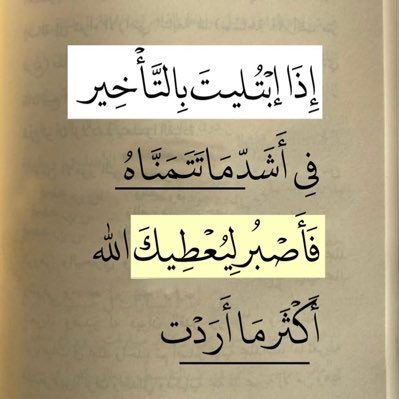 إِذَا إبْتُليتَ بِالتَّأْخِير
فِي أَشَدّ مَا تَتَمَنَّاهُ
فَأَصْبُر لِيُعْطِيكَ الله
أَكْثَر مَا أَرَدْت